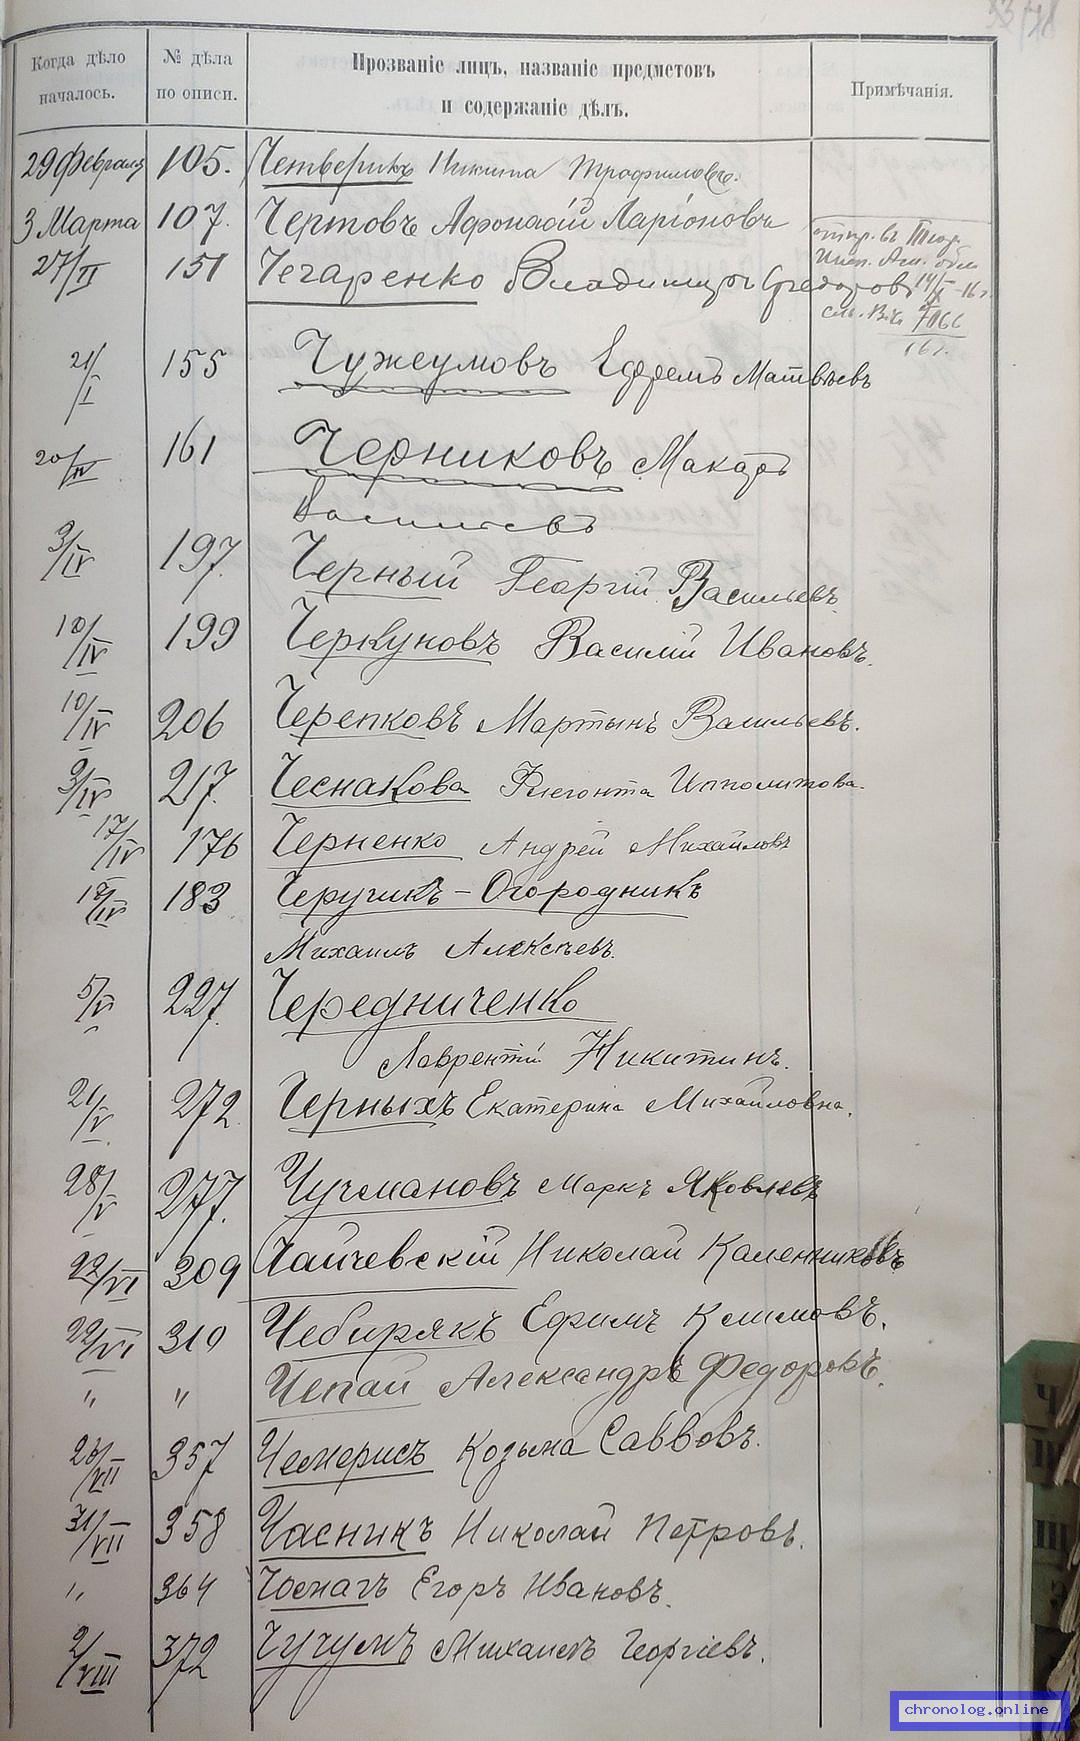 Когда дѣло началось.
№ дѣла по описи.
Прозваніе лицъ, названіе предметовъ
и содержаніе дѣлъ.
Примѣчанія.
29 Февраля 105. Четверикъ Никита Трофимовъ.
3 Марта 107. Чертовъ Афонасій Ларіоновъ
27/II 151 Чегаренко Владимиръ Ѳедоровъ
14/X 16 г.
7066
16 г.
21/I 155 Чужеумовъ Ефремъ Матвѣевъ
20/IV 161 Черниковъ Макаръ
Васильевъ
3/IV 197. Черный Георгій Васильевъ.
10/IV 199 Черкуновъ Василій Ивановъ.
10/IV 206 Черепковъ Мартынъ Васильевъ.
9/IV 217. Чеснакова Ипполитова.
17/IV 176 Черненко Андрей Михайловъ
18/IV 183 Черучикъ - Огородникъ
Михаилъ Алексѣевъ.
5/V 227. Чередниченко
Лаврентій Никитинъ.
21/V 272. Черныхъ Екатерина Михайловна.
28/V 277. Чучмановъ Маркъ Яковлевъ
22/VI 309 Чайчевскій Николай Каленниковъ
22/VI 310 Чебирякъ Ефимъ Климовъ.
" " Чепай Александръ Федоровъ.
26/VII 357 Чемерисъ Козьма Саввовъ.
31/VII 358 Часникъ Николай Петровъ.
" 364 Чоснагъ Егоръ Ивановъ.
2/VIII 372 Чучумъ Михаилъ Георгіевъ.
Ч
Щ
Э
chronolog.online